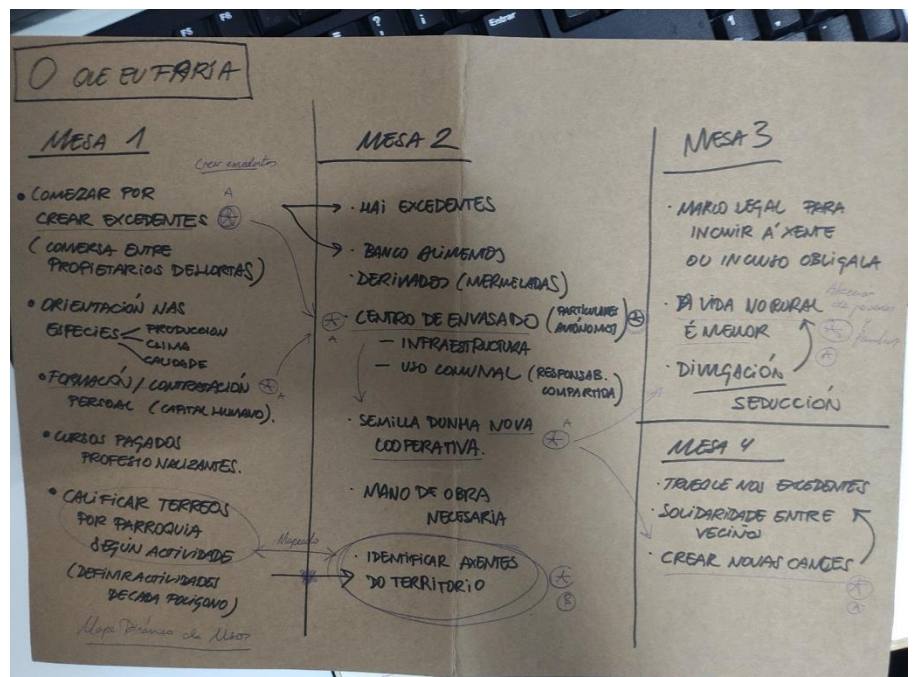 F5
F6
Enter
O QUE EU FARIA
MESA 1
Crear excedentes
A
• COMEZAR POR
CREAR EXCEDENTES
(CONVERSA ENTRE
PROPIETARIOS DE HORTAS)
• ORIENTACIÓN NAS
ESPECIES
PRODUCCION
CLIMA
CALIDADE
• FORMACIÓN / CONTRATACIÓN
A
PERSOAL (CAPITAL HUMANO).
• CURSOS PAGADOS
PROFESIONALIZANTES.
• CALIFICAR TERREOS
POR PARROQUIA
SEGÚN ACTIVIDADE
(DEFINIR ACTIVIDADES
DE CADA POLÍGONO)
de Usos
MESA 2
· HAI EXCEDENTES
· BANCO ALIMENTOS
· DERIVADOS (MERMELADAS)
· CENTRO DE ENVASADO (PARTICULARES
AUTÓNOMOS)
A
— INFRAESTRUCTURA
— USO COMUNAL (RESPONSAB.
COMPARTIDA)
· SEMILLA DUNHA NOVA
A
COOPERATIVA.
· MANO DE OBRA
NECESARIA
· IDENTIFICAR AXENTES
DO TERRITORIO
B
MESA 3
· MARCO LEGAL PARA
INCLUIR Á XENTE
OU INCLUSO OBLIGALA
· A VIDA NO RURAL
É MELLOR
A
· DIVULGACIÓN
SEDUCCIÓN
A
MESA 4
· TRUEQUE NOS EXCEDENTES
· SOLIDARIDADE ENTRE
VECIÑOS
· CREAR NOVAS CANLES
A